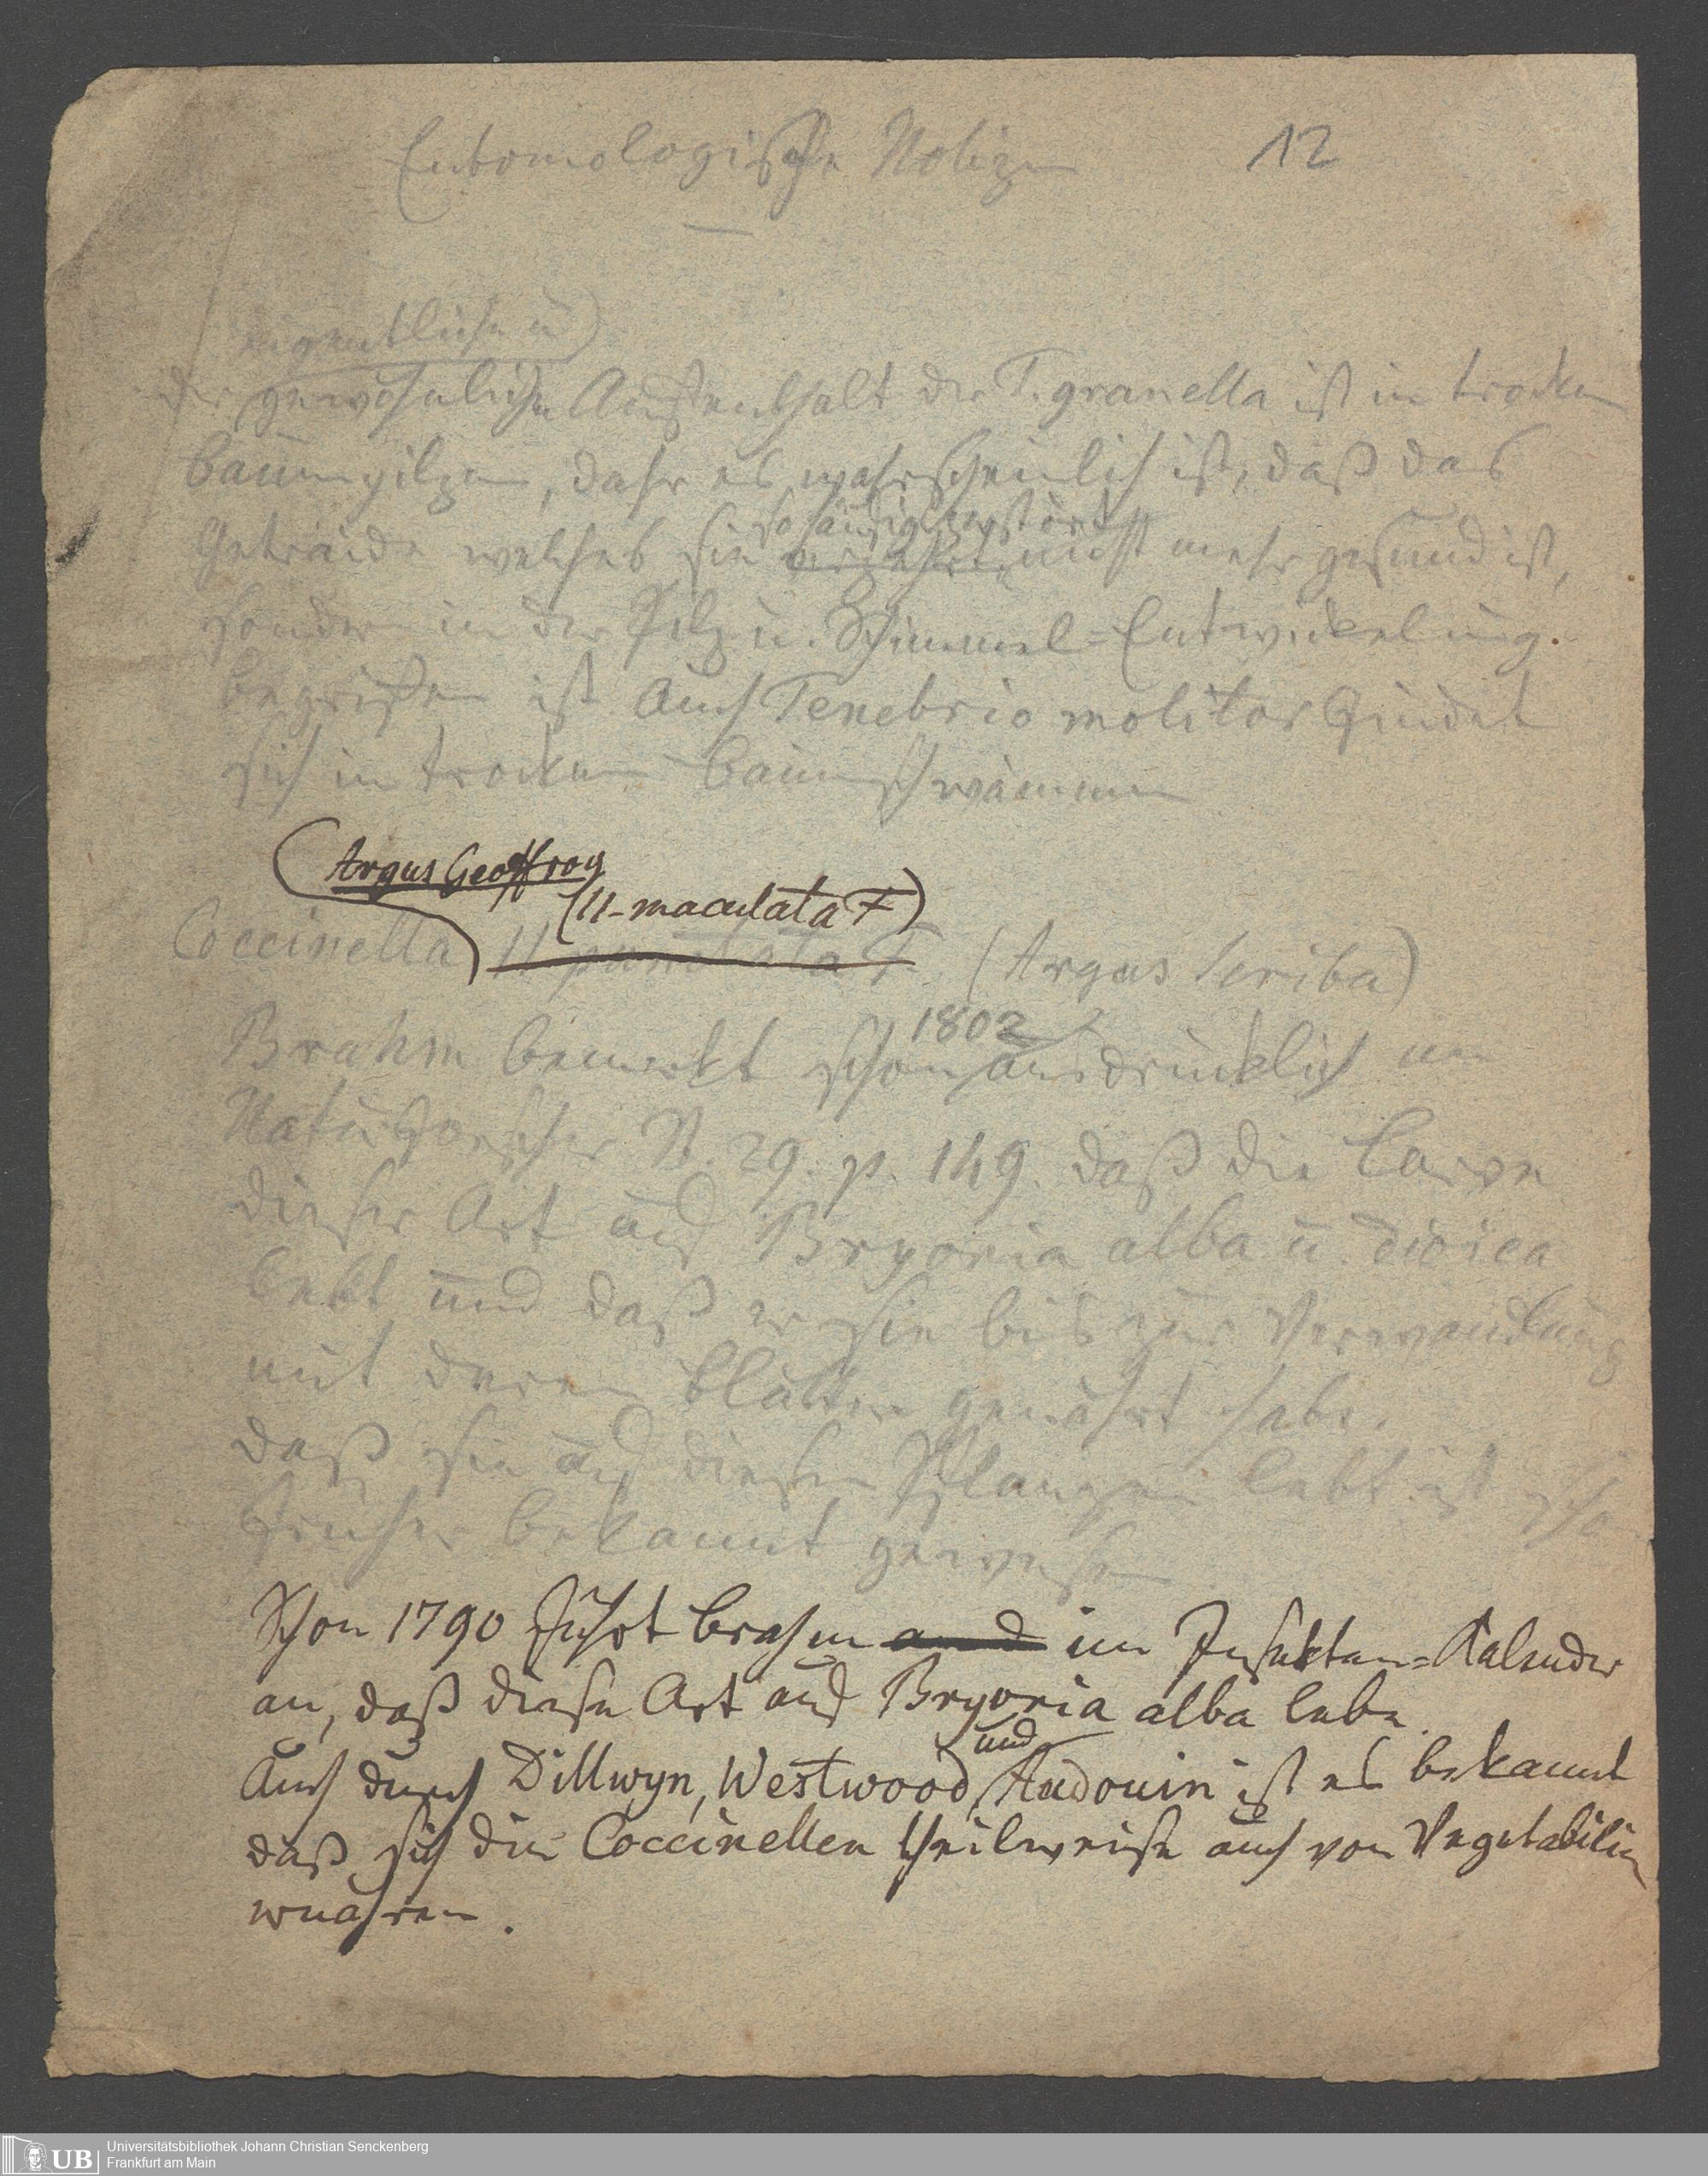 Entomologische Notizen 12
eigentliche u)
Der gewöhnliche Aufenthalt der T. granella ist in trocken
Baumpilzen, daher es wahrscheinlich ist, daß das
so häufig zerstört
Getraide welches sie verzehrt, nicht mehr gesund ist,
sondern in der Pilz u. Schimmel=Entwickelung.
begriffen ist Auch Tenebrio molitor findet
sich in trocknen Baumschwämmen
Argus Geoffroy
(11-maculata F)
Coccinella 11 punctata F. (Argus Scriba)
1802
Brahm bemerkt schon ausdrücklich im
Naturforscher St. 29. p. 149. daß die Larve
dieser Art auf Bryonia alba u. dioica
lebt und daß er sie bis zur Verwandlung
mit deren Blätter genährt habe.
daß sie auf diesen Pflanzen lebt ist scho
früher bekannt gewesen
Schon 1790 führt Brahm im Insekten=Kalender
an, daß diese Art auf Bryonia alba lebe.
und
Auch durch Dillwyn, Westwood, Audouin ist es bekannt
daß sich die Coccinellen theilweise auch von Vegetabilien
ernähren.
UB Universitätsbibliothek Johann Christian Senckenberg
Frankfurt am Main